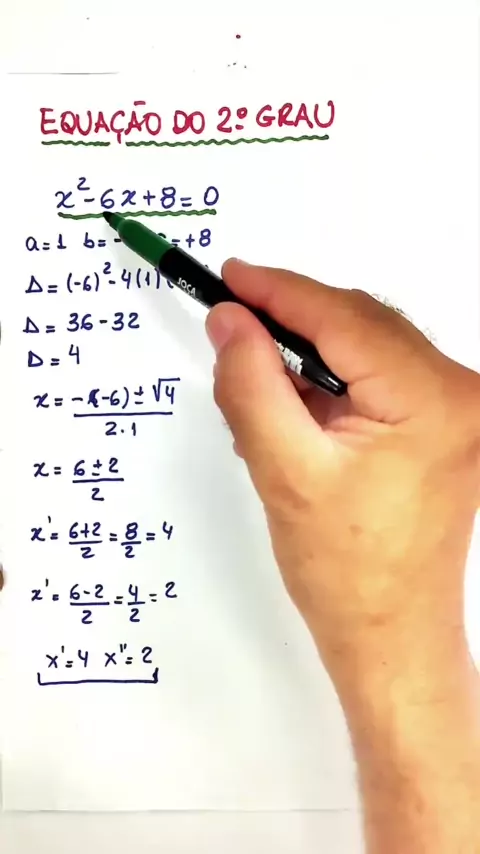 EQUAÇÃO DO 2º GRAU
x² - 6x + 8 = 0
a = 1 b = - = +8
Δ = (-6)² - 4(1)
Δ = 36 - 32
Δ = 4
x = -(-6) ± √4
2·1
x = 6 ± 2
2
x' = 6+2 = 8 = 4
2 2
x' = 6-2 = 4 = 2
2 2
x' = 4 x'' = 2
JOCA